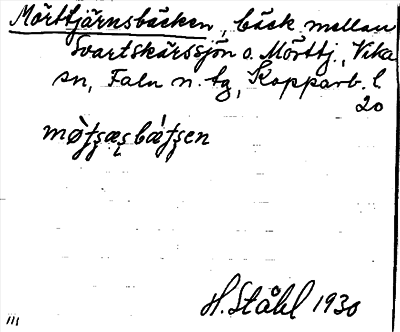 Mörttjärnsbäcken, bäck mellan
Svartskärssjön o. Mörttj., Vika
sn, Falu n. tg, Kopparb. l
20
H. Ståhl 1930